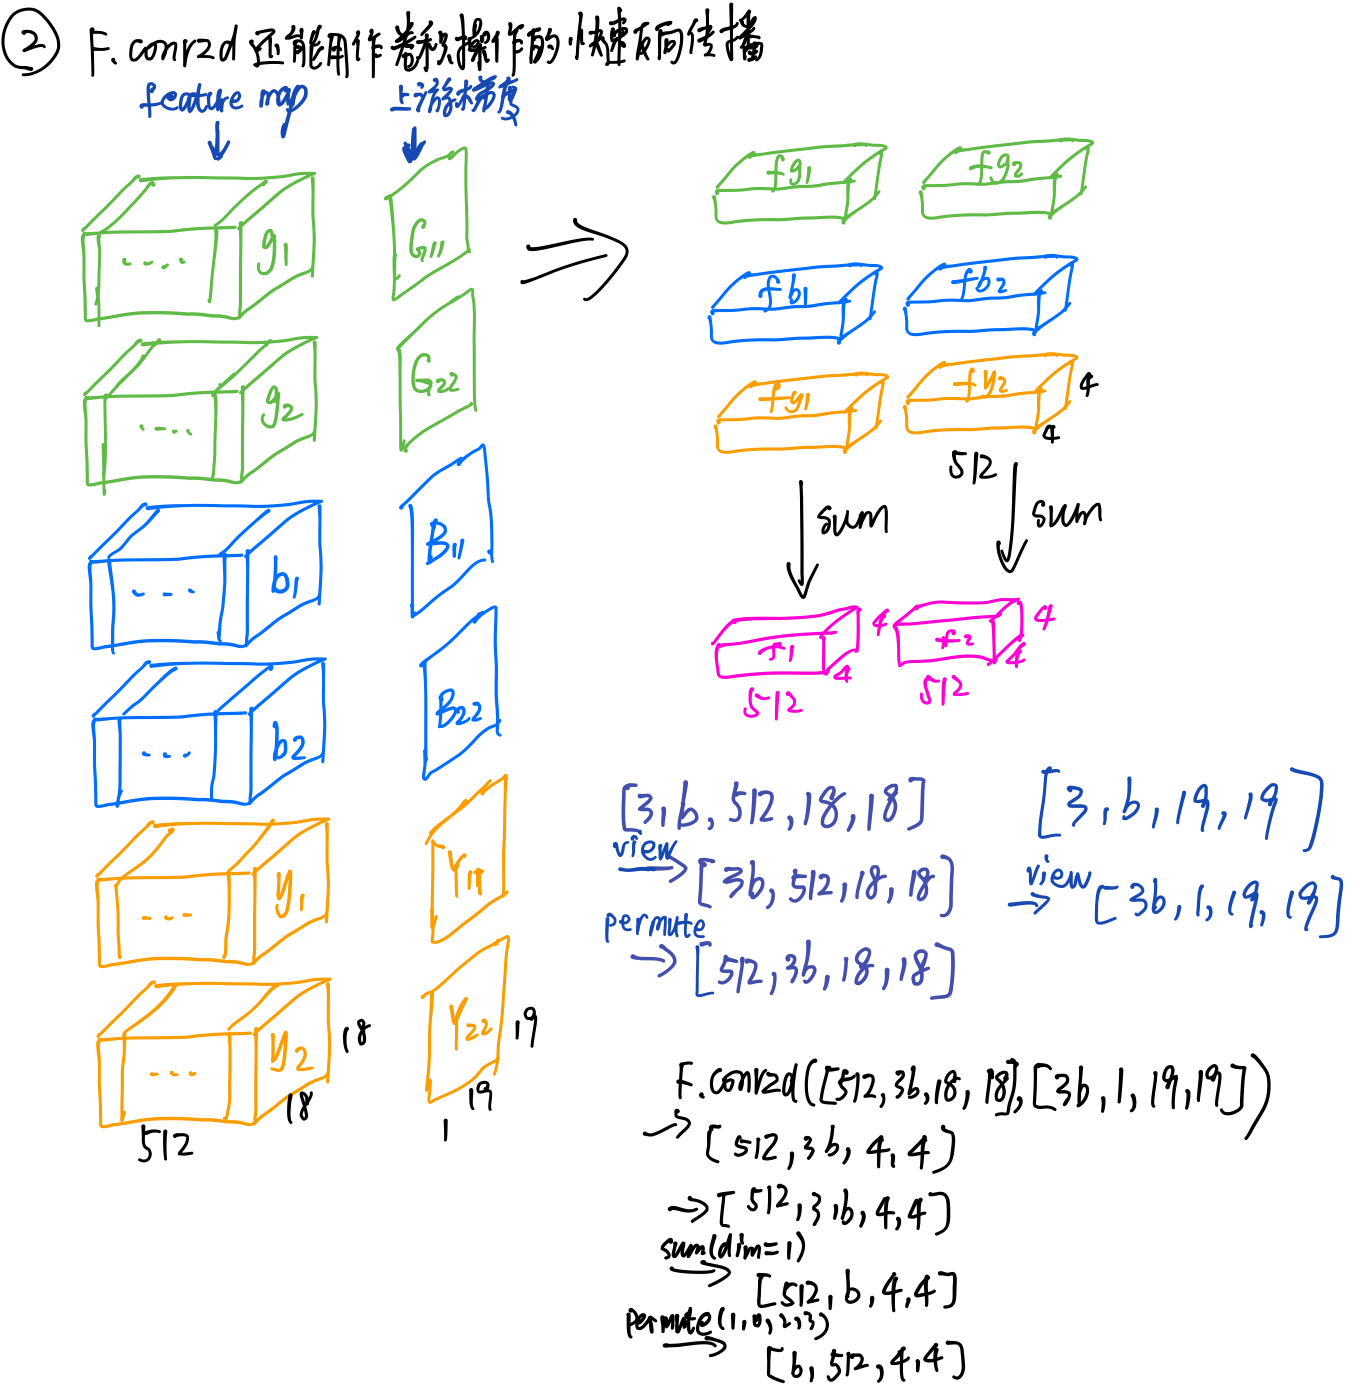 ② F.conv2d 还能用作卷积操作的快速反向传播
feature map
上游梯度
g1
G11
g2
G22
b1
B11
b2
B22
y1
Y11
y2
Y22
18
18
512
19
19
1
fg1
fg2
fb1
fb2
fy1
fy2
4
4
512
sum
sum
f1
4
4
512
f2
4
4
512
[3, b, 512, 18, 18]
view
→ [3b, 512, 18, 18]
permute
→ [512, 3b, 18, 18]
[3, b, 19, 19]
view
→ [3b, 1, 19, 19]
F.conv2d([512, 3b, 18, 18], [3b, 1, 19, 19])
→ [512, 3b, 4, 4]
→ [512, 3, b, 4, 4]
sum(dim=1)
→ [512, b, 4, 4]
permute(1, 0, 2, 3)
→ [b, 512, 4, 4]